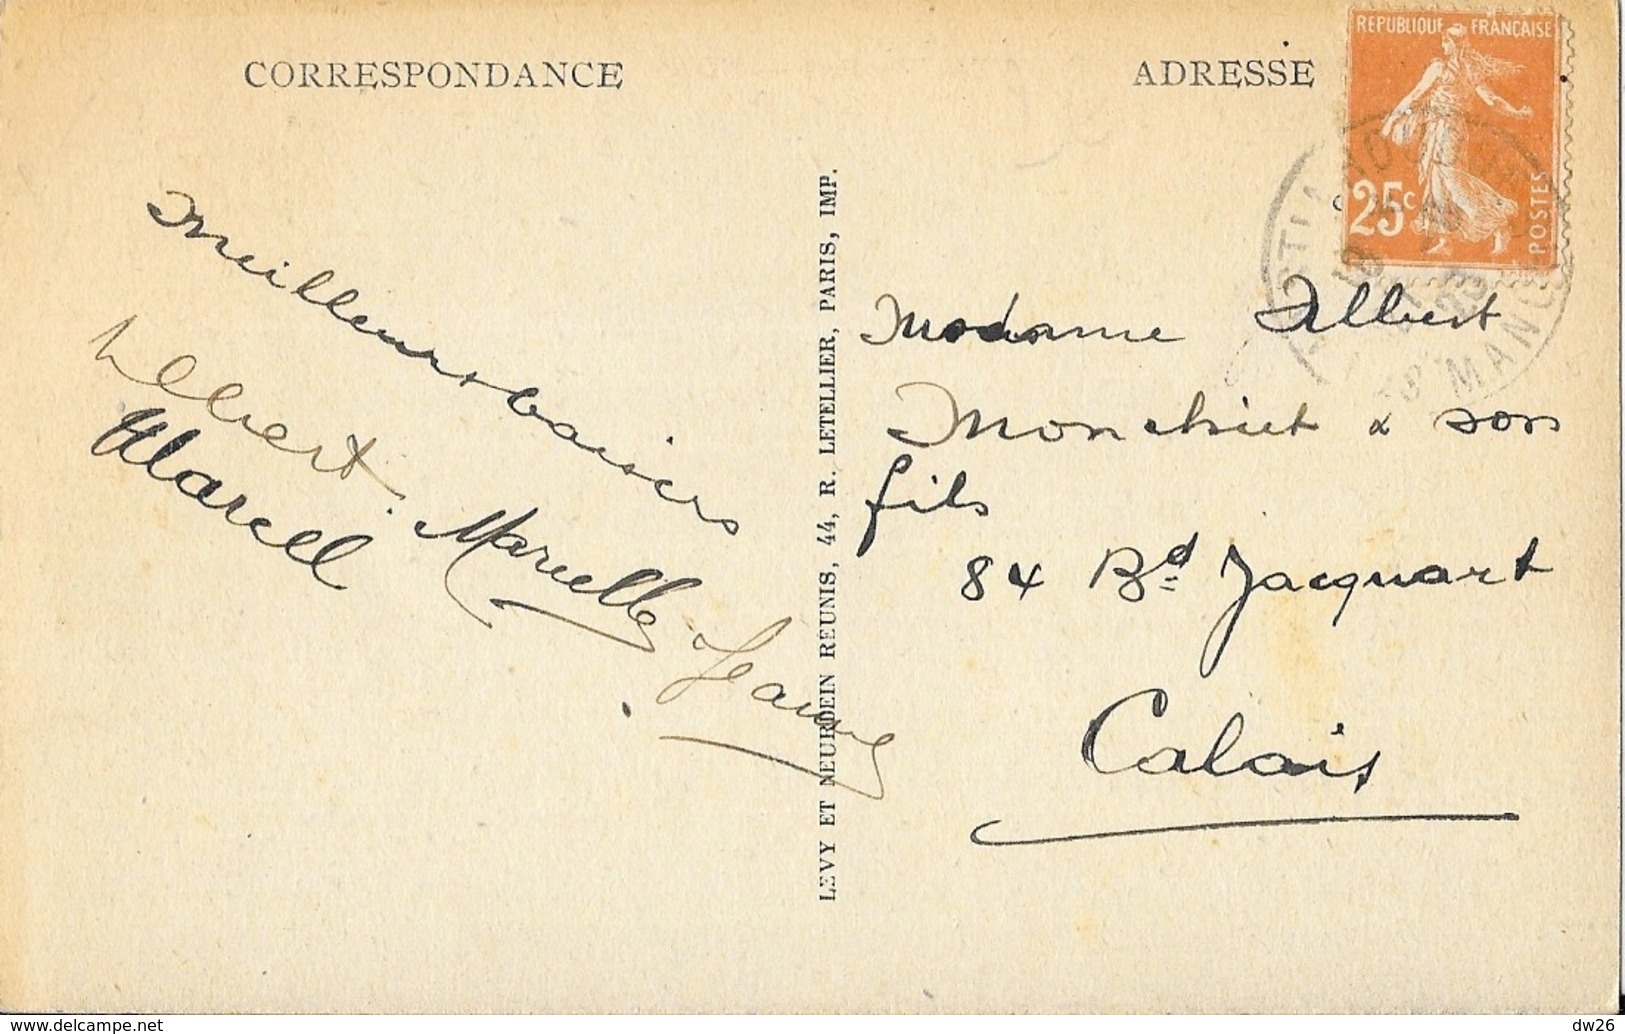 CORRESPONDANCE
ADRESSE
REPUBLIQUE FRANÇAISE
25c
POSTES
MANCHE
Meilleurs baisers
Albert
Marcel
Marcelle
Jeanne
LEVY ET NEURDEIN REUNIS, 44, R. LETELLIER, PARIS, IMP.
Madame Albert
Monchiet & son
fils
84 Bd Jacquart
Calais
https://www.delcampe.net
dw26